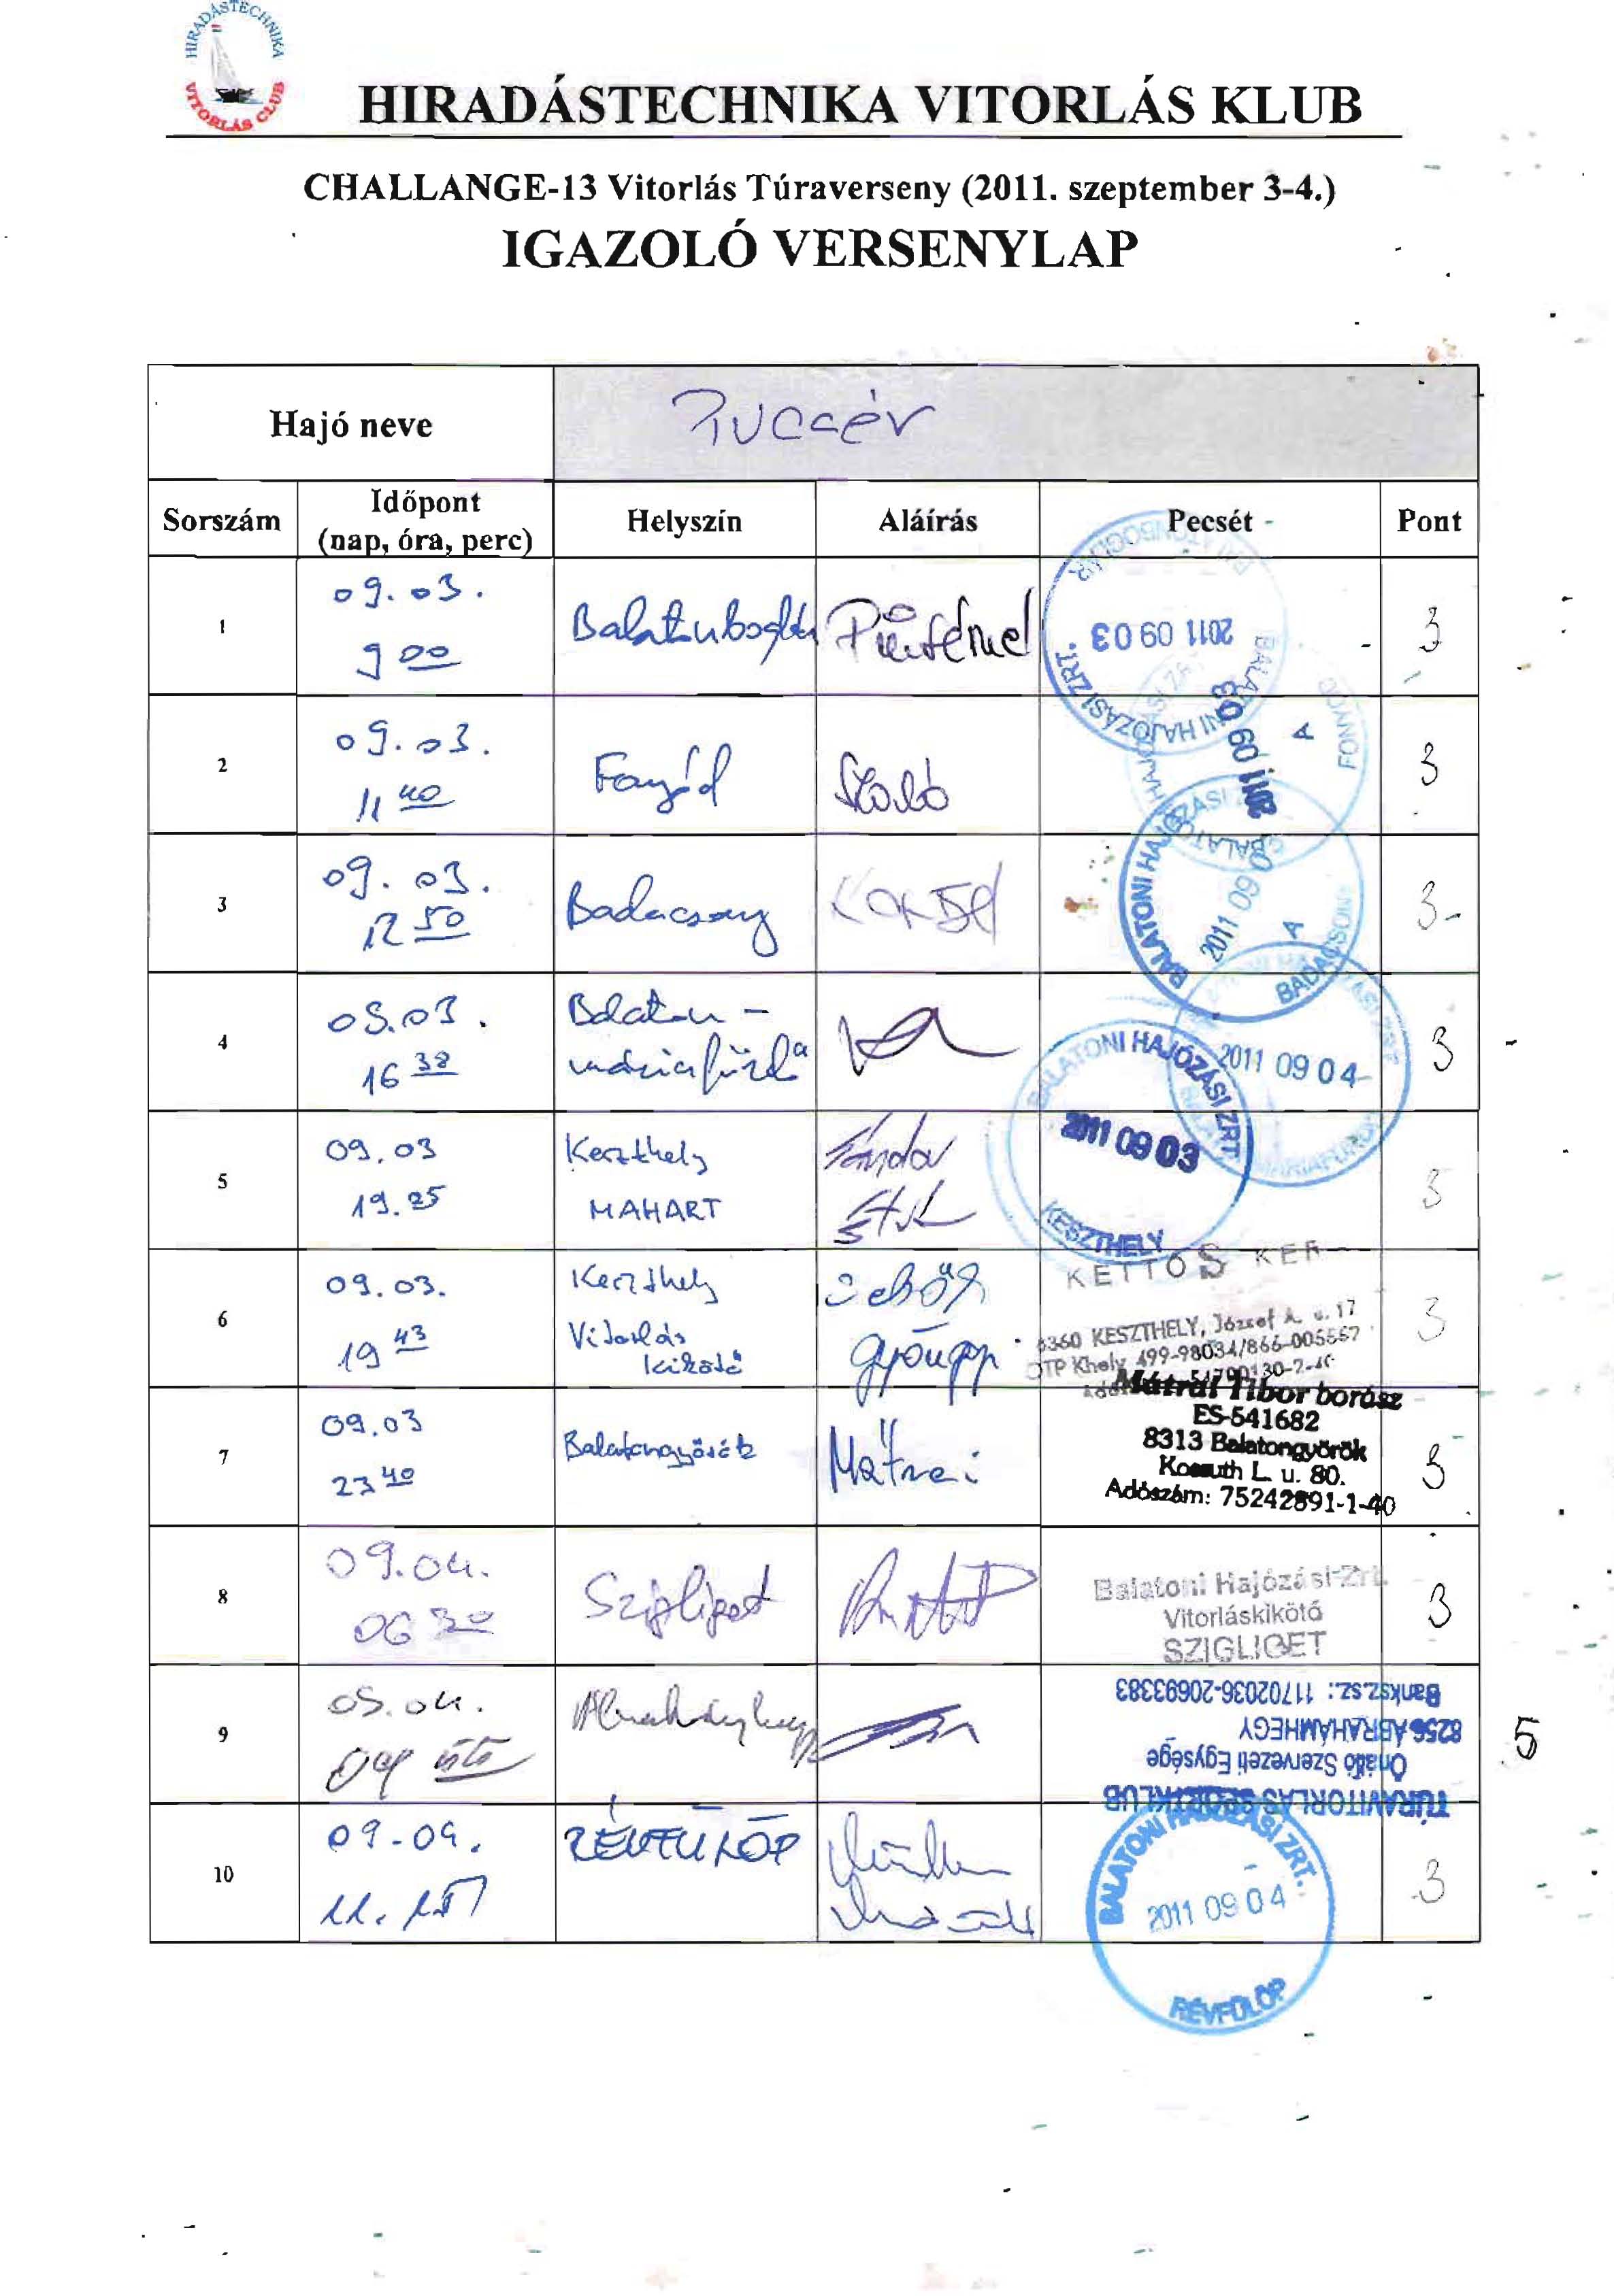 HIRADÁSTECHNIKA
VITORLÁS CLUB
HIRADÁSTECHNIKA VITORLÁS KLUB
CHALLANGE-13 Vitorlás Túraverseny (2011. szeptember 3-4.)
IGAZOLÓ VERSENYLAP
Hajó neve
Sorszám Időpont (nap, óra, perc) Helyszín Aláírás Pecsét Pont
1 09.03. 9 00 3
BALATONI HAJÓZÁSI ZRT.
2011 09 03
2 09.03. 11 40 Fonyód Szabó 3
2011 09 03
A
FONYÓD
3 09.03. 12 50 Badacsony 3-
BALATONI HAJÓZÁSI
2011 09 0
A
BADACSONY
4 09.03. 16 38 Balaton-
máriafürdő 3
2011 09 04
5 09.03 19.25 Keszthely
MAHART Sándor 3
BALATONI HAJÓZÁSI ZRT
2011 09 03
KESZTHELY
6 09.03. 19 43 Keszthely
Vitorlás
kikötő 3
KETTŐS KER
8360 KESZTHELY, József A. u. 17
OTP Khely 499-98034/866-005557
7 09.03 23 40 Balatongyörök Mátrai 3
Mátrai Tibor borász
ES-541682
8313 Balatongyörök
Kossuth L. u. 80.
Adószám: 75242891-1-40
8 09.04. 06 30 Szigliget 3
Balatoni Hajózási Zrt.
Vitorláskikötő
SZIGLIGET
9 09.04. Ábrahámhegy 5
TÚRAVITORLÁS SPORTKLUB
Önálló Szervezeti Egysége
8256 ÁBRAHÁMHEGY
Banksz.sz.: 11702036-20693383
10 09-04. RÉVFÜLÖP 3
BALATONI HAJÓZÁSI ZRT.
2011 09 04
RÉVFÜLÖP